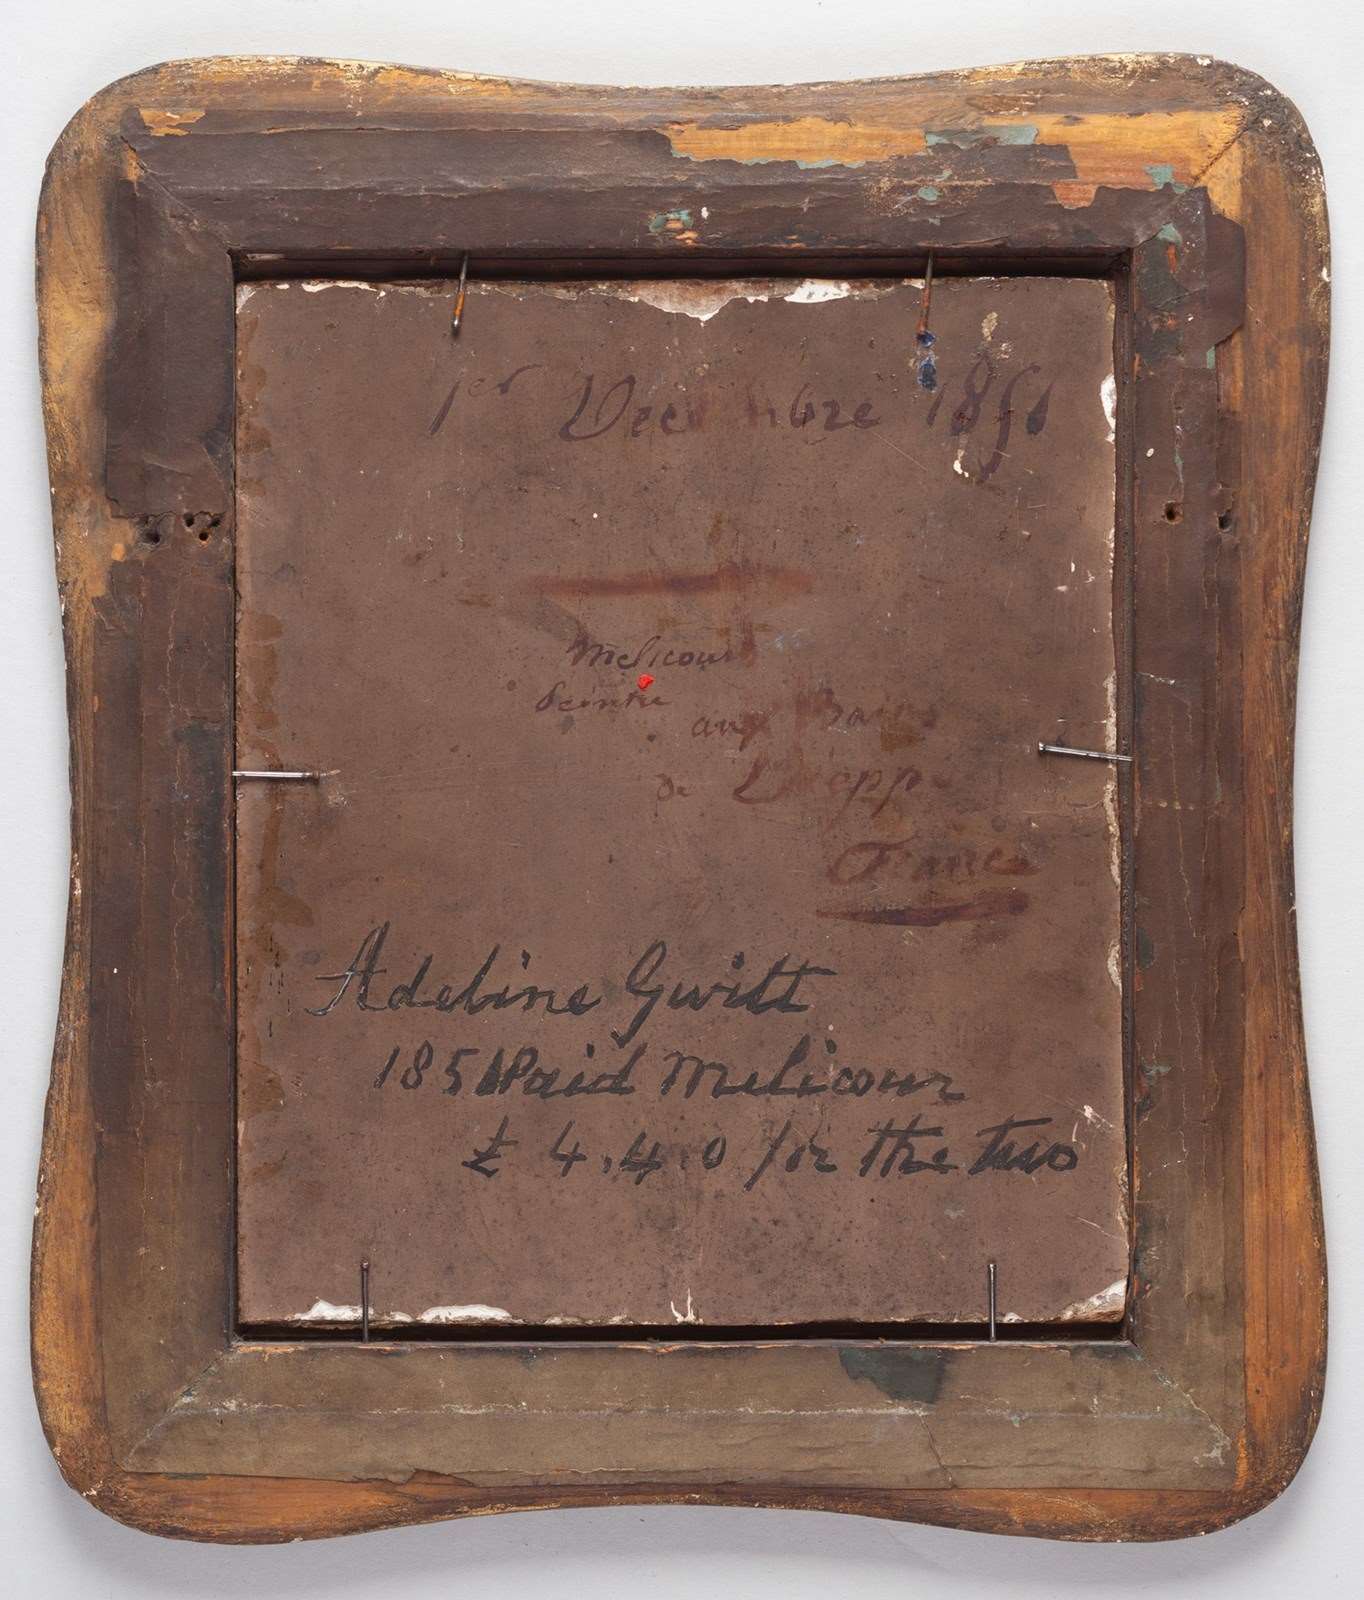 1er Decembre 1851
Melicourt
Peintre
aux Bains
de Dieppe
France
Adeline Gwilt
1851 Paid Melicour
£ 4.4.0 for the two